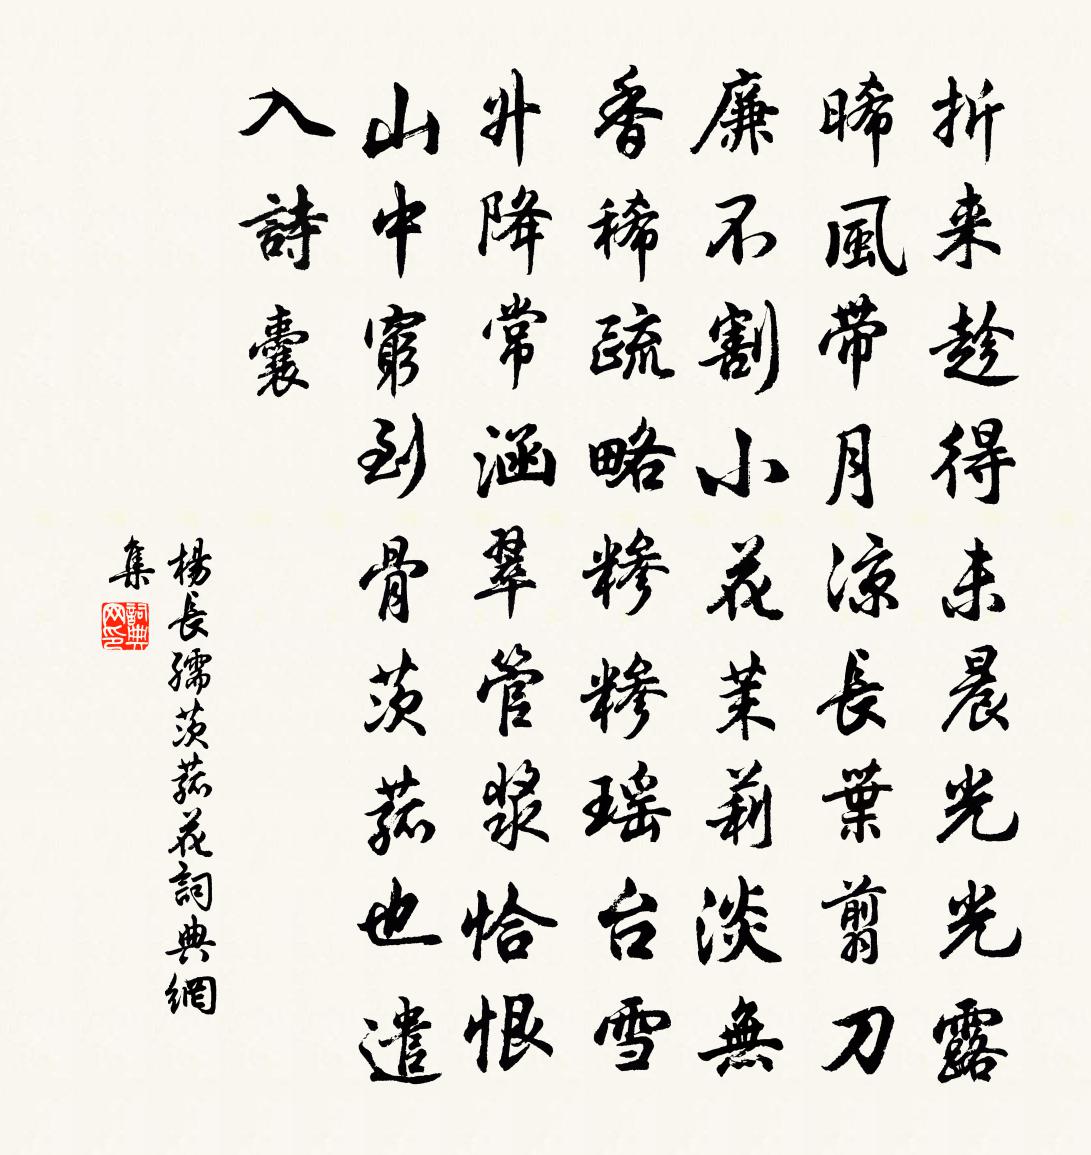 折来趁得未晨光光露
晞風带月涼長葉翦刀
廉不割小花茉莉淡無
香稀疏略糝糝瑶台雪
升降常涵翠管浆恰恨
山中窮到骨茨菰也遣
入詩囊
楊長孺茨菰花詞典網
集
詞典
网印